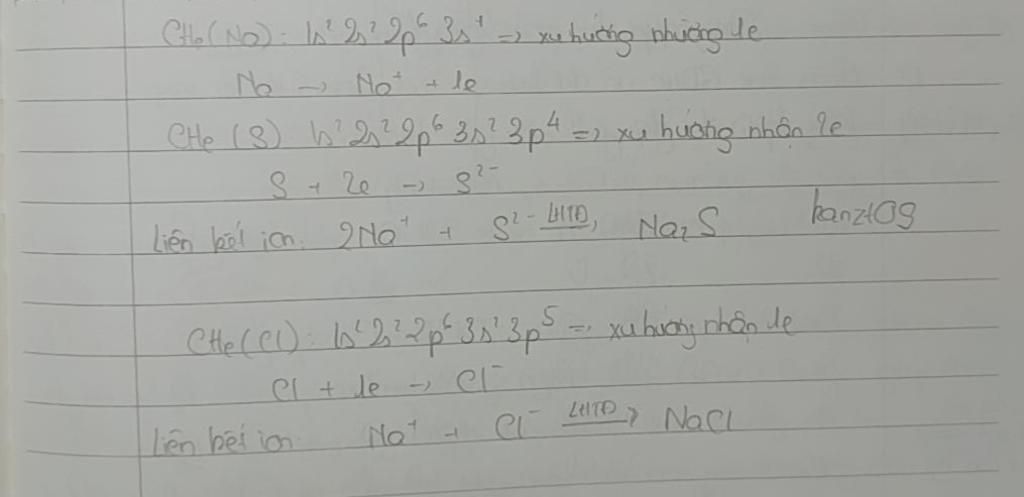 CHe (Na): 1s² 2s² 2p⁶ 3s¹ => xu hướng nhường 1e
Na → Na⁺ + 1e
CHe (S) 1s² 2s² 2p⁶ 3s² 3p⁴ => xu hướng nhận 2e
S + 2e → S²⁻
Liên kết ion: 2Na⁺ + S²⁻ LHTĐ→ Na₂S hanzt09
CHe (Cl): 1s² 2s² 2p⁶ 3s² 3p⁵ => xu hướng nhận 1e
Cl + 1e → Cl⁻
Liên kết ion: Na⁺ + Cl⁻ LHTĐ→ NaCl